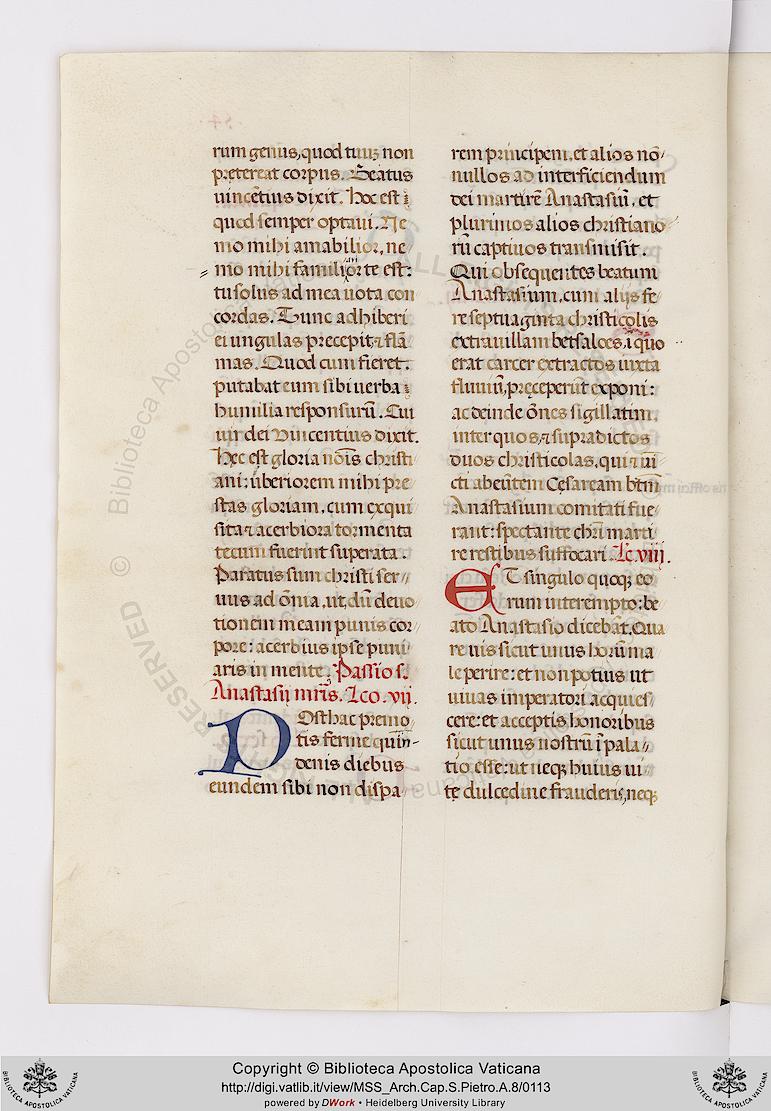 rum genus, quod tuuȝ non
pretereat corpus. Beatus
uincētius dixit. Hoc est ;
quod semper optaui. Ne
mo mihi amabilior, ne
mo mihi familior te est:
tu solus ad mea uota con
cordas. Tunc adhiberi
ei ungulas precepit ⁊ flā
mas. Quod cum fieret:
putabat eum sibi uerba ;
humilia responsurū. Cui
uir dei Vincentius dixit.
Hec est gloria nois christi
ani: uberiorem mihi pre
stas gloriam, cum exqui
sita ⁊ acerbiora tormenta
tecum fuerint superata.
Paratus sum christi ser
uus ad ōnia, ut, dū deuo
tionem meam punis cor
pore: acerbius ipse puni
aris in mente. Passio s.
Anastasij mr̄is. Lco. vij.
Post hac premo
tis ferme quin
denis diebus
eundem sibi non dispa
rem principem, et alios nō
nullos ad interficiendum
dei martirē Anastasiū, et
plurimos alios christiano
rū captiuos transmisit.
Qui obsequentes beatum
Anastasium, cum alijs fe
re septuaginta christicolis
extra uillam betsaloes, i quo
erat carcer extractos iuxta
fluuiū, preceperūt exponi:
ac deinde ōnes sigillatim,
inter quos, ⁊ supradictos
duos christicolas, qui ⁊ ui
cti abeūtem Cesaream btm̄
Anastasium comitati fue
rant: spectante chri marti
re restibus suffocari. Lc. viij.
Et singulo quoqȝ eo
rum interempto: be
ato Anastasio dicebāt. Qua
re uis sicut unus horū ma
le perire: et non potius ut
uiuas imperatori acquies
cere: et acceptis honoribus
sicut unus nostrū ī pala
tio esse: ut neqȝ huius ui
te dulcedine frauderis, neqȝ
Copyright © Biblioteca Apostolica Vaticana
http://digi.vatlib.it/view/MSS_Arch.Cap.S.Pietro.A.8/0113
powered by DWork • Heidelberg University Library
BIBLIOTECA APOSTOLICA VATICANA
BIBLIOTECA APOSTOLICA VATICANA